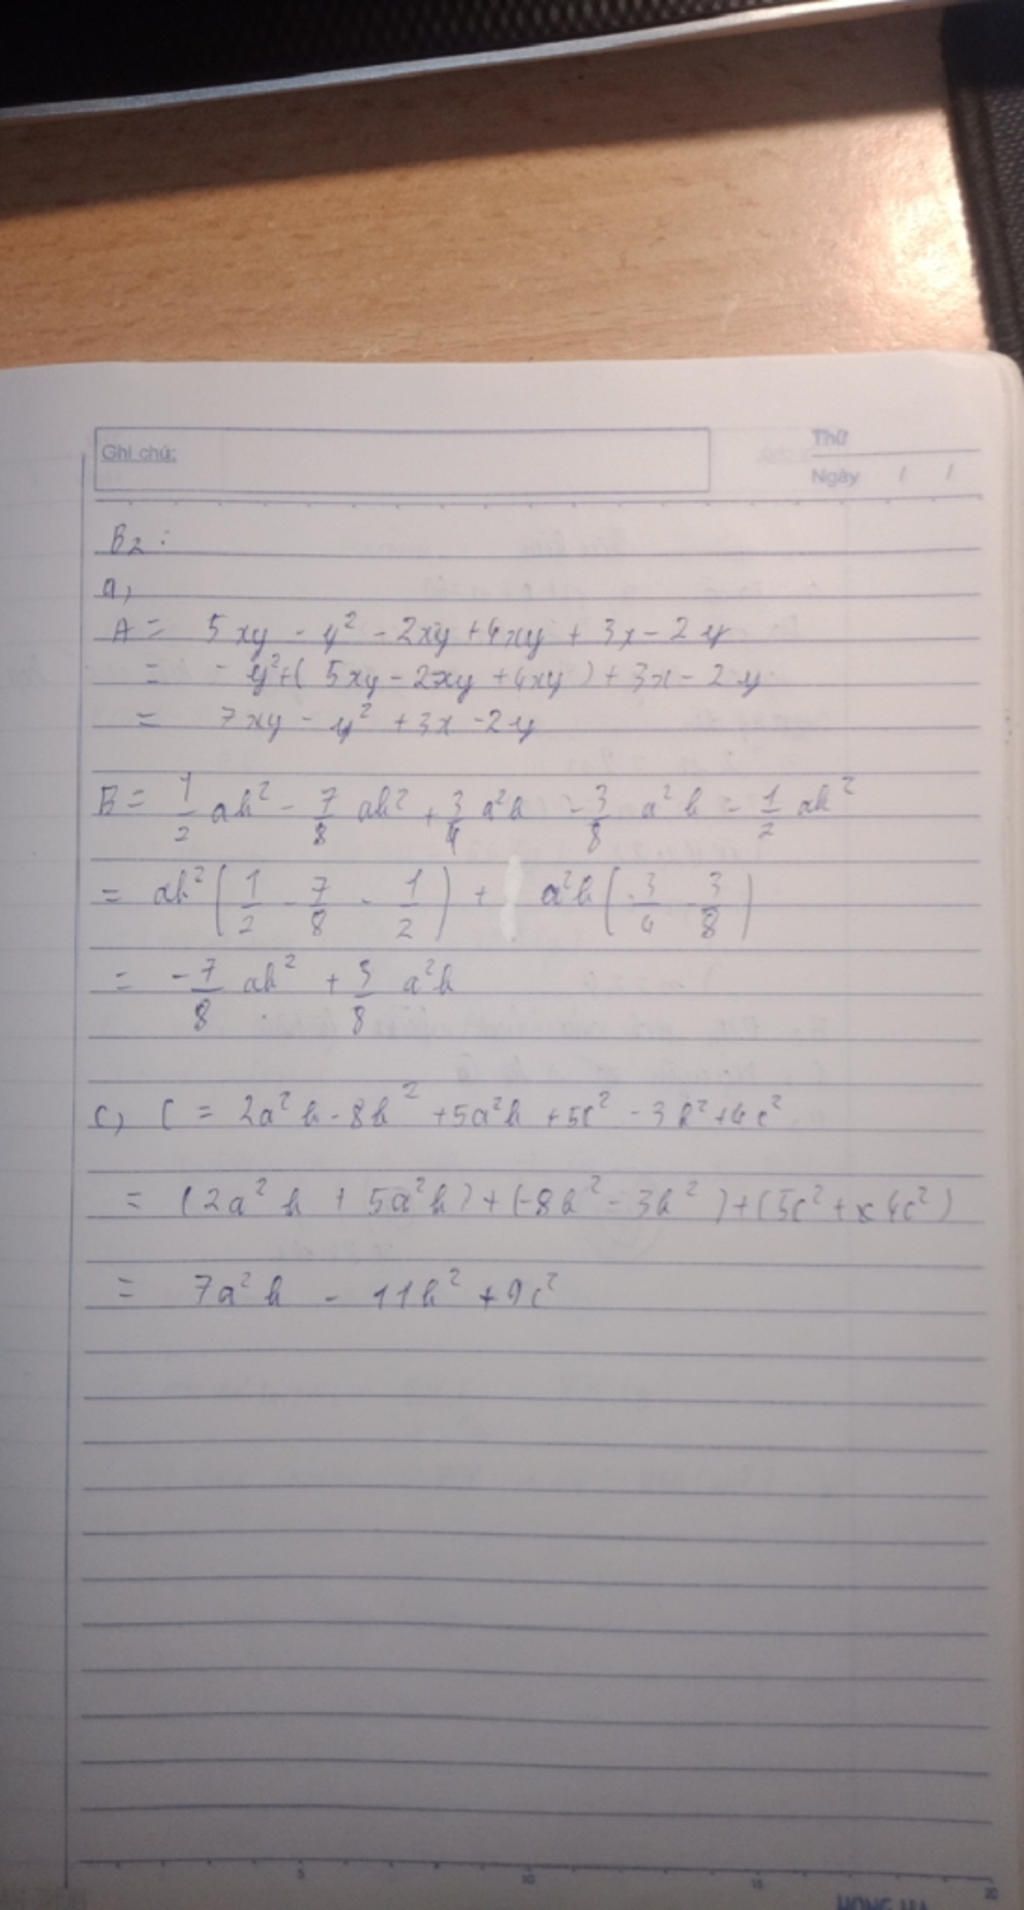 Ghi chú:
Thứ
Ngày / /
B2:
a,
A = 5xy - y² - 2xy + 4xy + 3x - 2y
= - y² + ( 5xy - 2xy + 4xy ) + 3x - 2y
= 7xy - y² + 3x - 2y
B = 1/2 ab² - 7/8 ab² + 3/4 a²b - 3/8 a²b - 1/2 ab²
= ab² ( 1/2 - 7/8 - 1/2 ) + a²b ( 3/4 - 3/8 )
= -7/8 ab² + 3/8 a²b
c, C = 2a²b - 8b² + 5a²b + 5c² - 3b² + 4c²
= (2a²b + 5a²b) + (-8b² - 3b²) + (5c² + 4c²)
= 7a²b - 11b² + 9c²
5 10 15 20